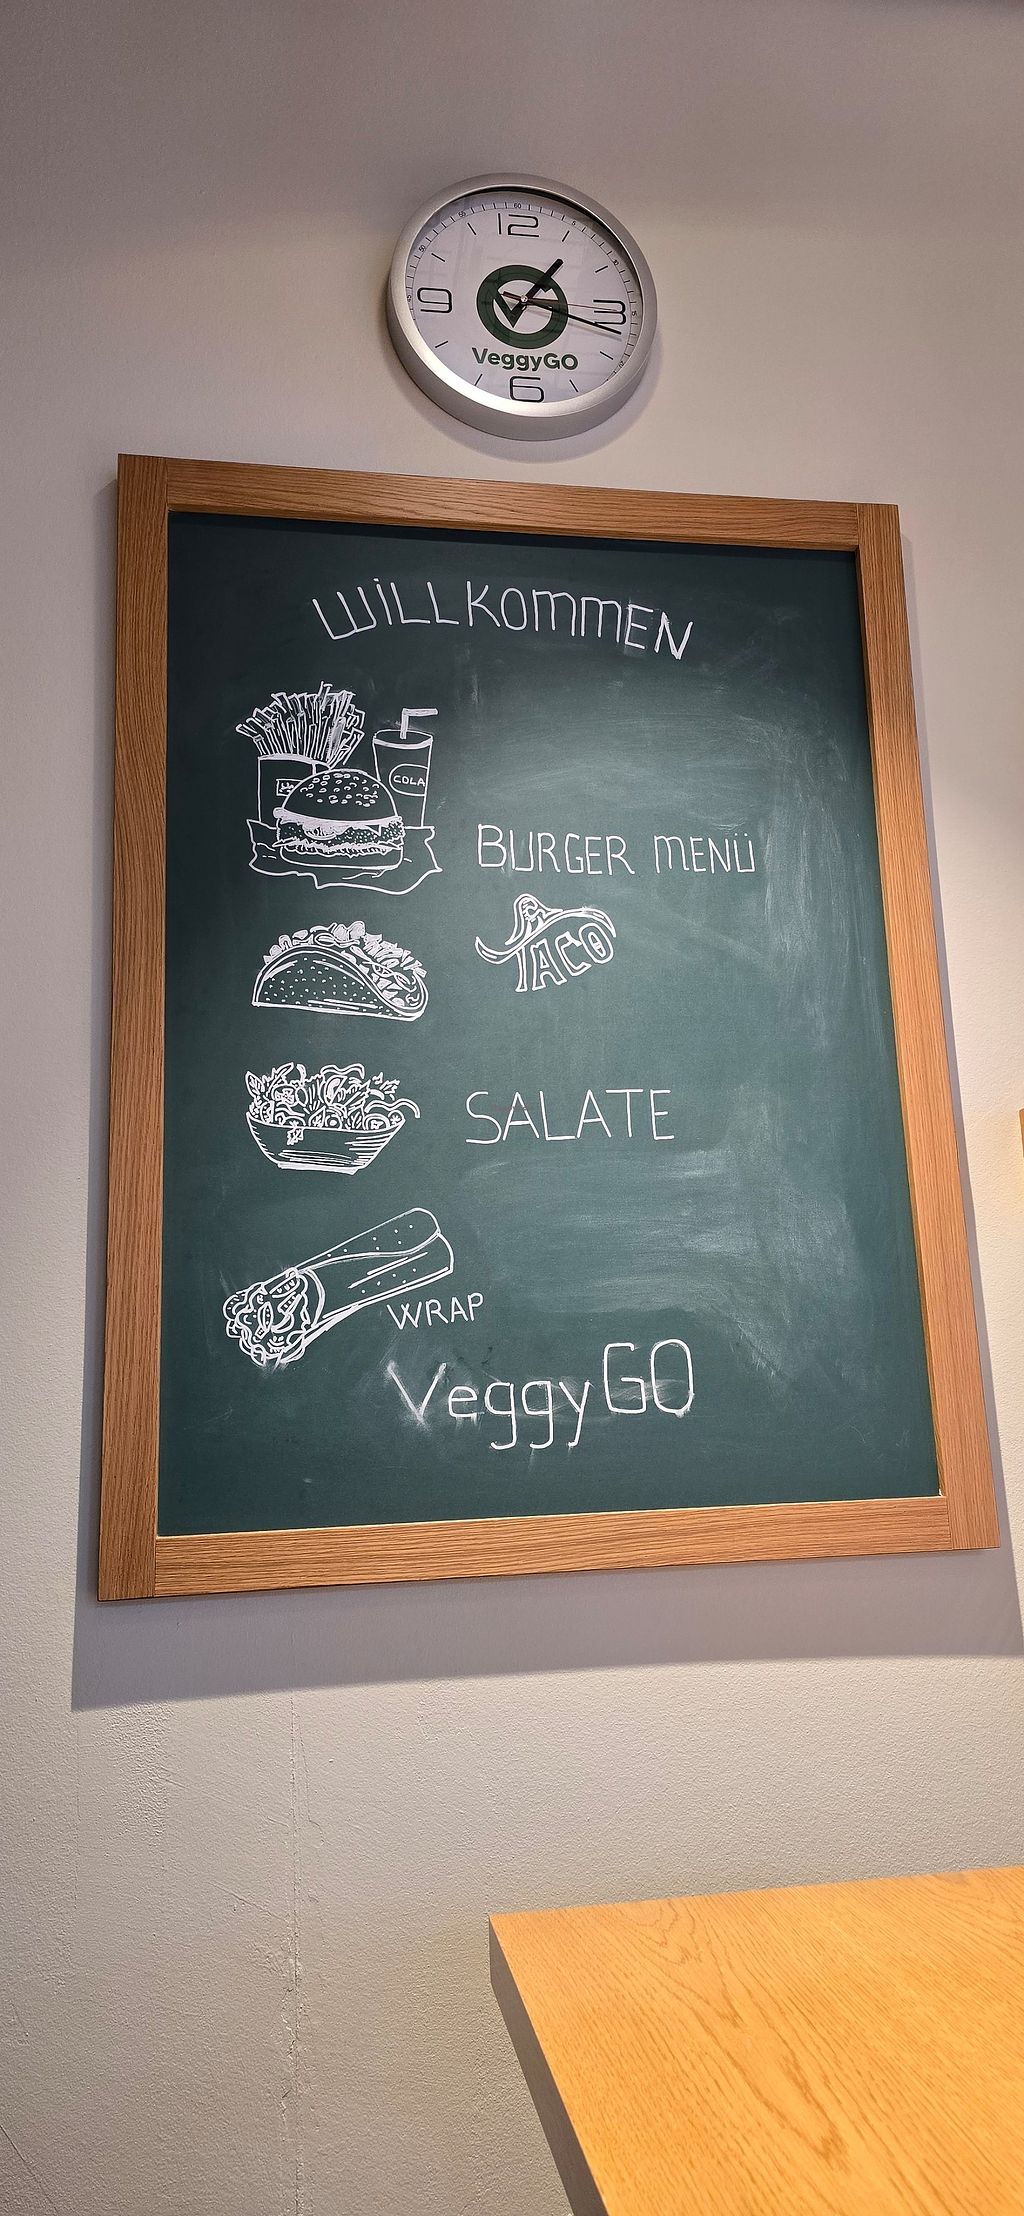 12
9
3
VeggyGO
6
WILLKOMMEN
COLA
BURGER MENÜ
TACO
SALATE
WRAP
VeggyGO